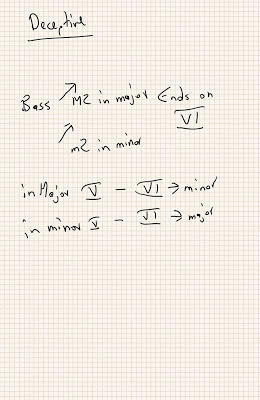 Deceptive
Bass ↗ M2 in major Ends on
VI
↗ m2 in minor
in Major V - VI → minor
in minor V - VI → major